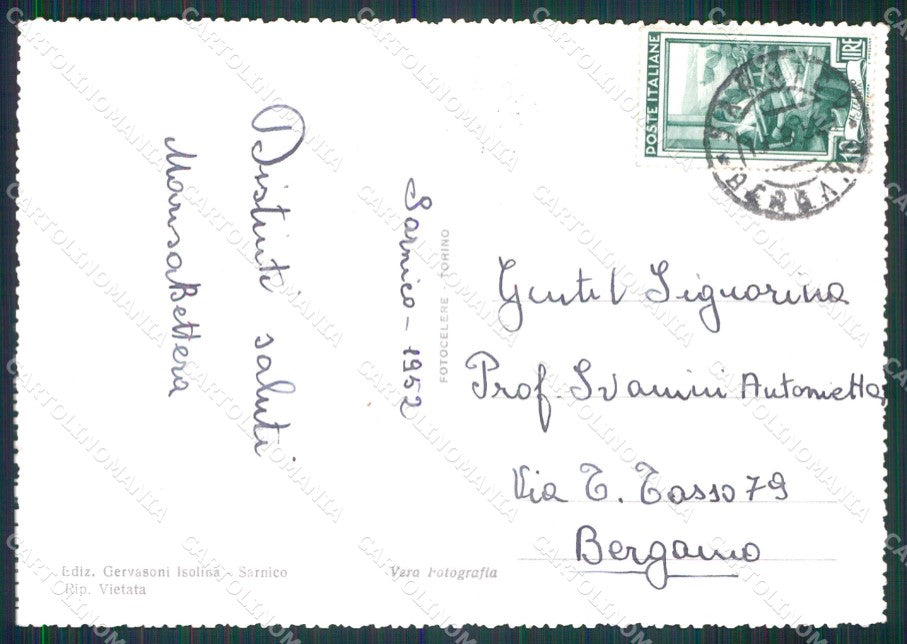 Distinti saluti
Marisa Bettera
Sarnico - 1952
FOTOCELERE - TORINO
POSTE ITALIANE
LIRE
10
BERGA
Gentil Signorina
Prof. Ivanini Antonietta
Via T. Tasso 79
Bergamo
Ediz. Gervasoni Isolina - Sarnico
Rip. Vietata
Vera Fotografia
CARTOLINOMANIA